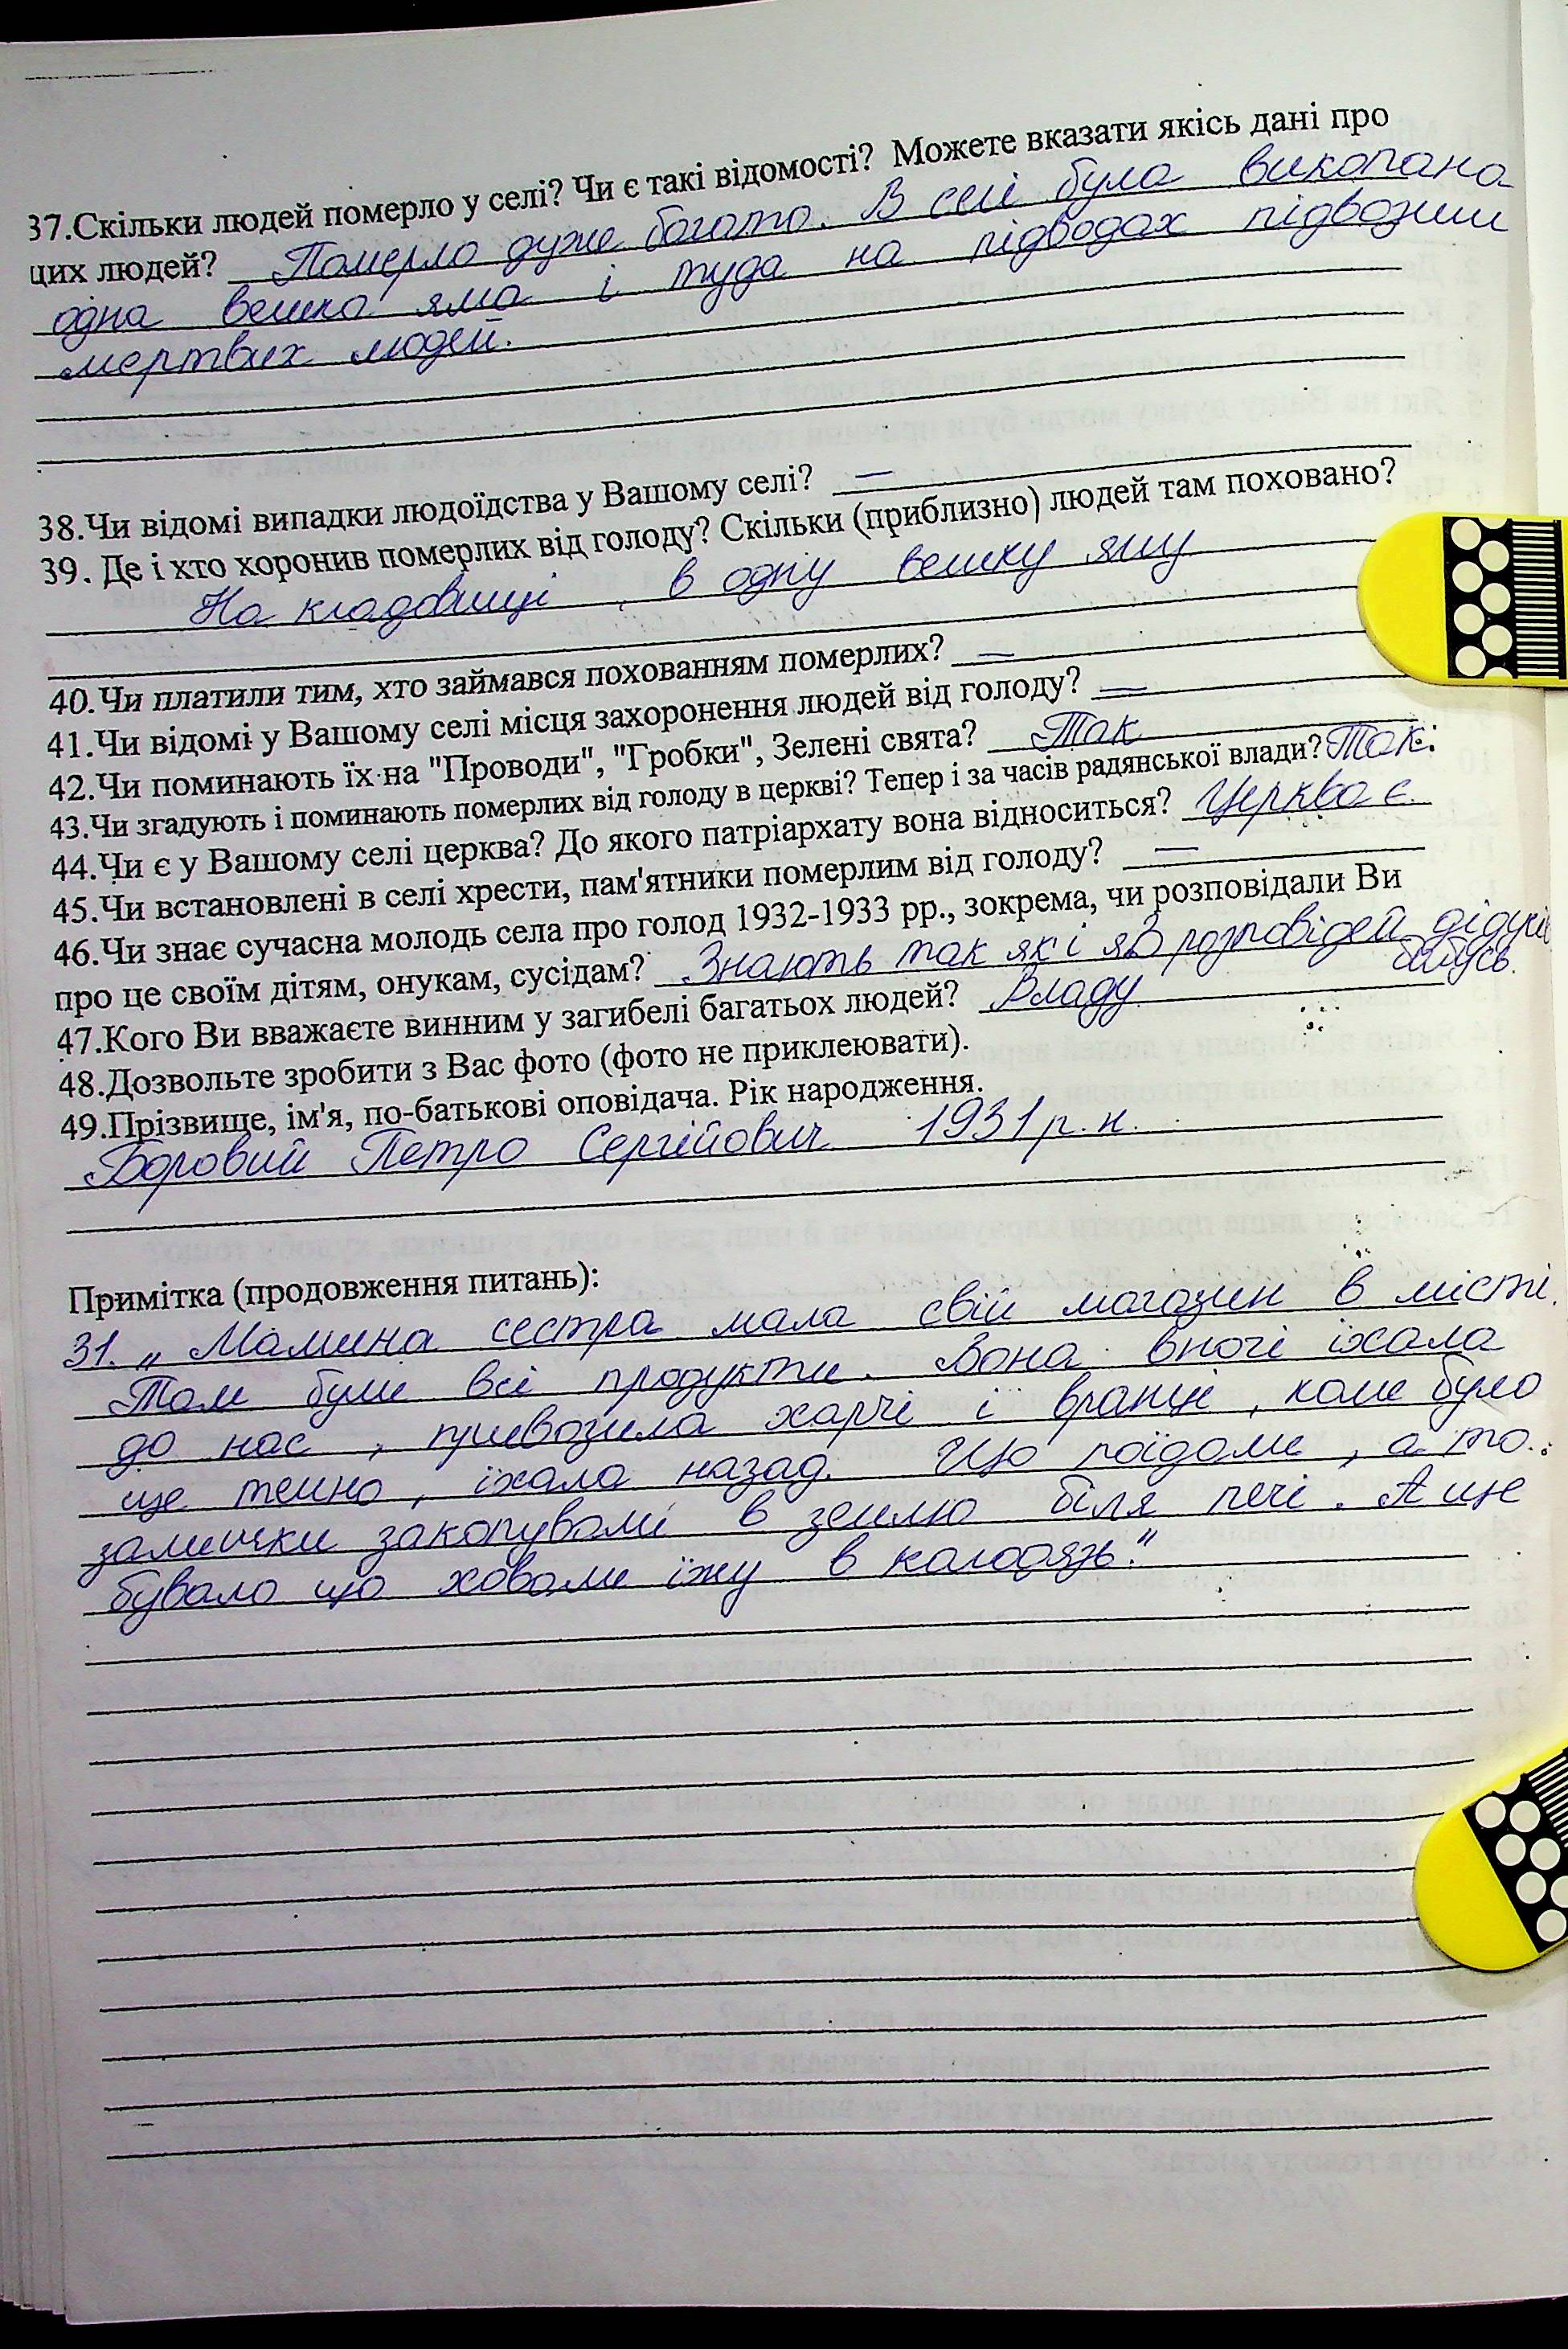 37.Скільки людей померло у селі? Чи є такі відомості? Можете вказати якісь дані про
цих людей? Померло дуже багато. В селі була викопана
одна велика яма і туда на підводах підвозили
мертвих людей.
38.Чи відомі випадки людоїдства у Вашому селі? —
39. Де і хто хоронив померлих від голоду? Скільки (приблизно) людей там поховано?
На кладовищі , в одну велику яму
40.Чи платили тим, хто займався похованням померлих? —
41.Чи відомі у Вашому селі місця захоронення людей від голоду? —
42.Чи поминають їх на "Проводи", "Гробки", Зелені свята? Так
43.Чи згадують і поминають померлих від голоду в церкві? Тепер і за часів радянської влади? Так.
44.Чи є у Вашому селі церква? До якого патріархату вона відноситься? Церква є.
45.Чи встановлені в селі хрести, пам'ятники померлим від голоду? —
46.Чи знає сучасна молодь села про голод 1932-1933 рр., зокрема, чи розповідали Ви
про це своїм дітям, онукам, сусідам? Знають так як і я з розповідей дідусів
бабусь.
47.Кого Ви вважаєте винним у загибелі багатьох людей? Владу
48.Дозвольте зробити з Вас фото (фото не приклеювати).
49.Прізвище, ім'я, по-батькові оповідача. Рік народження.
Боровий Петро Сергійович 1931 р. н.
Примітка (продовження питань):
31. „ Мамина сестра мала свій магазин в місті.
Там були всі продукти. Вона вночі їхала
до нас , привозила харчі і вранці , коли було
ще темно , їхала назад. Що поїдоми , а то
залишки закопували в землю біля печі . А ще
бувало що ховали їжу в колодязь."